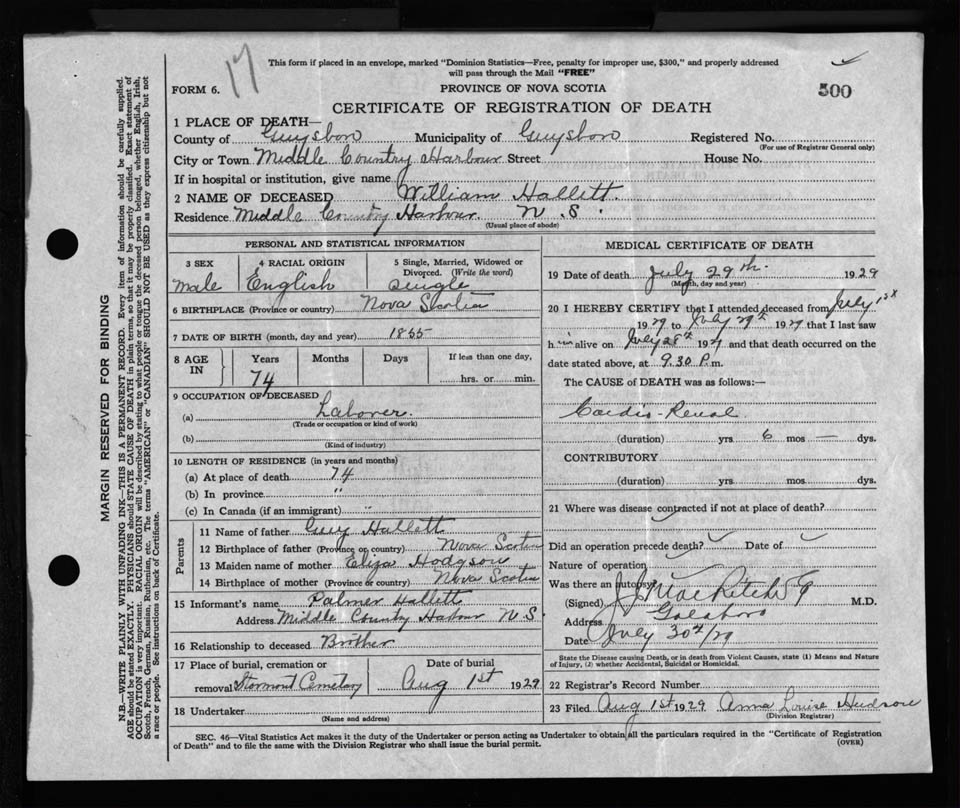 17
This form if placed in an envelope, marked "Dominion Statistics—Free, penalty for improper use, $300," and properly addressed
will pass through the Mail "FREE"
FORM 6.
PROVINCE OF NOVA SCOTIA
500
CERTIFICATE OF REGISTRATION OF DEATH
1 PLACE OF DEATH—
County of Guysboro Municipality of Guysboro Registered No.
(For use of Registrar General only)
City or Town Middle Country Harbour Street House No.
If in hospital or institution, give name
2 NAME OF DECEASED William Hallett.
Residence Middle Country Harbour. N. S.
(Usual place of abode)
PERSONAL AND STATISTICAL INFORMATION
3 SEX
male
4 RACIAL ORIGIN
English
5 Single, Married, Widowed or
Divorced. (Write the word)
single
6 BIRTHPLACE (Province or country) Nova Scotia
7 DATE OF BIRTH (month, day and year) 1855
8 AGE
IN
Years
74
Months
Days
If less than one day,
hrs. or min.
9 OCCUPATION OF DECEASED
(a) Laborer.
(Trade or occupation or kind of work)
(b)
(Kind of industry)
10 LENGTH OF RESIDENCE (in years and months)
(a) At place of death 74
(b) In province "
(c) In Canada (if an immigrant) "
Parents
11 Name of father Guy Hallett
12 Birthplace of father (Province or country) Nova Scotia
13 Maiden name of mother Eliza Hodgson
14 Birthplace of mother (Province or country) Nova Scotia
15 Informant's name Palmer Hallett
Address Middle Country Habour N S.
16 Relationship to deceased Brother
17 Place of burial, cremation or
removal Stormont Cemetery
Date of burial
Aug 1st 1929
18 Undertaker
(Name and address)
MEDICAL CERTIFICATE OF DEATH
19 Date of death July 29th. 1929
(Month, day and year)
20 I HEREBY CERTIFY that I attended deceased from July 1st
1929 to July 29th 1929 that I last saw
him alive on July 28th 1929 and that death occurred on the
date stated above, at 9.30 P.m.
The CAUSE of DEATH was as follows:—
Cardio-Renal
(duration) yrs 6 mos — dys.
CONTRIBUTORY
(duration) yrs. mos. dys.
21 Where was disease contracted if not at place of death?
Did an operation precede death? Date of
Nature of operation
Was there an autopsy?
(Signed) M.D.
Address Goldboro
Date July 30th/29
State the Disease causing Death, or in death from Violent Causes, state (1) Means and Nature
of Injury, (2) whether Accidental, Suicidal or Homicidal.
22 Registrar's Record Number
23 Filed Aug 1st 1929 Anna Louise Hudson
(Division Registrar)
SEC. 46—Vital Statistics Act makes it the duty of the Undertaker or person acting as Undertaker to obtain all the particulars required in the "Certificate of Registration
of Death" and to file the same with the Division Registrar who shall issue the burial permit.
(OVER)
MARGIN RESERVED FOR BINDING
N.B.—WRITE PLAINLY WITH UNFADING INK—THIS IS A PERMANENT RECORD. Every item of information should be carefully supplied.
AGE should be stated EXACTLY. PHYSICIANS should STATE CAUSE OF DEATH in plain terms, so that it may be properly classified. Exact statement of
OCCUPATION is very important. RACIAL ORIGIN will be described by stating to what people or tongue the deceased person belonged, whether English, Irish,
Scotch, French, German, Russian, Ruthenian, etc. The terms "AMERICAN" or "CANADIAN" SHOULD NOT BE USED as they express citizenship but not
a race or people. See instructions on back of Certificate.